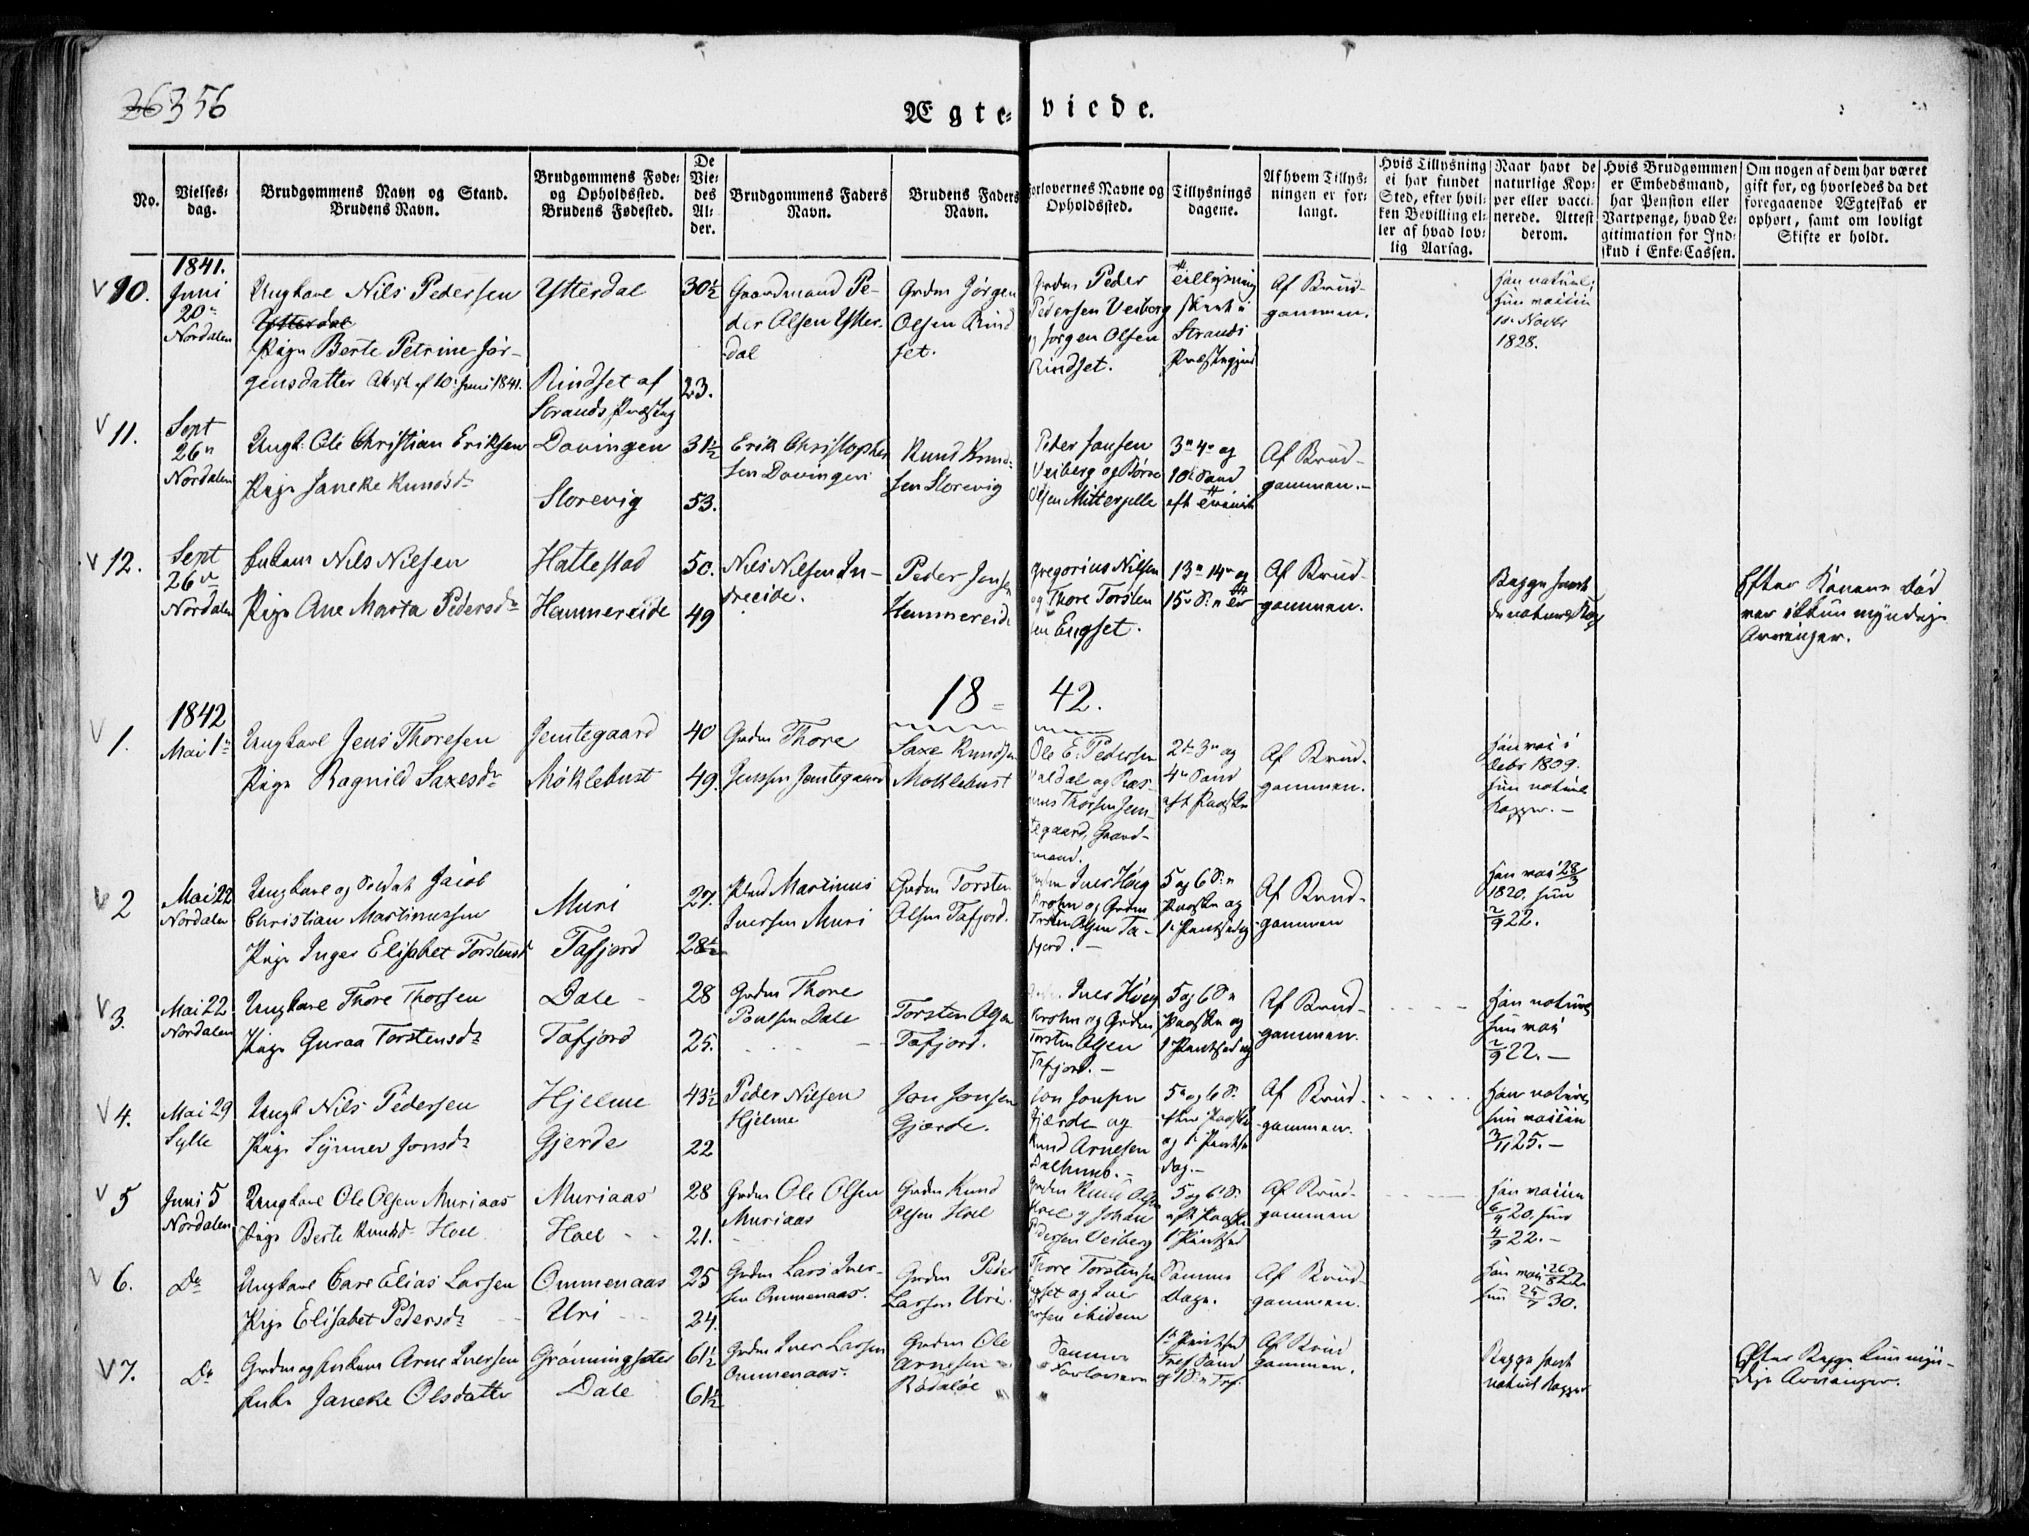 26356
Ægteviede.
No.
Vielses-
dag.
Brudgommens Navn og Stand.
Brudens Navn.
Brudgommens Føde-
og Opholdssted.
Brudens Fødested.
De
Vie-
des
Al-
der.
Brudgommens Faders
Navn.
Brudens Faders
Navn.
Forlovernes Navne og
Opholdssted.
Tillysnings
dagene.
Af hvem Tillys-
ningen er for-
langt.
Hvis Tillysning
ei har fundet
Sted, efter hvil-
ken Bevilling el-
ler af hvad lov-
lig Aarsag.
Naar havt de
naturlige Kop-
per eller vacci-
nerede. Attest
derom.
Hvis Brudgommen
er Embedsmand,
har Pension eller
Vartpenge, hvad Le-
gitimation for Ind-
skud i Enke-Cassen.
Om nogen af dem har været
gift før, og hvorledes da det
foregaaende Ægteskab er
ophørt, samt om lovligt
Skifte er holdt.
V 10.
1841.
Juni
20n
Nordalen
Ungkarl Nils Pedersen
Ytterdal
Pige Berte Petrine Jør-
gensdatter Attest af 10 Juni 1841.
Ytterdal
Rindset af
Strands Præsteg
30½
23.
Gaardmand Pe-
der Olsen Ytter-
dal
Grdm Jørgen
Olsen Rind
set.
Grdm Peder
Pedersen Veiborg
og Jørgen Olsen
Rindset.
Tillysning
skeet i
Strands
Præstegjeld
Af Brud-
gommen.
han naturl.
hun vaccin
Novbr
1828.
V 11.
Sept
26n
Nordalen
Ungk: Ole Christian Eriksen
Pige Janeke Knudsdr
Dovingen
Storevig
31½
53.
Erik Christophe
sen Dovingen
Knud Knud-
sen Storevig
Peder Jansen
Veiberg og Børre
Olsen Mittergelle
3n 4n og
10n Sønd
eft Trinit
Af Brud-
gommen.-
V 12.
Sept
26n
Nordalen
Enkem Nils Nilsen
Pige Ane Marta Pedersdr
Hattestad
Hammereide
50.
49
Nils Nilsen In-
dreeide.
Peder Jensen
Hammereide
Gregorius Nilsen
og Thore Torsten
sen Engset.
13n 14n og
15n S:n Tr
Af Brud-
gommen.
Begge havt
de naturl. Kop
Efter Konens Død
var ikkun myndige
Arvinger.
18 = 42.
V 1.
1842
Mai 1n
Ungkarl Jens Thoresen
Pige Ragnild Saxesdr
Jemtegaard
Møklebust
40
49.
Grdm Thore
Jenssen Jemtegaard
Saxe Knudsen
Moklebust
Ole E. Pedersen
Valdal og Ras-
mus Thorsen Jem-
tegaard, Gaard-
mand.
2n 3n og
4n Sønd
eft Paaske
Af Brud-
gommen.
han vac i
Febr 1809.
hun naturl
Kopper. -
V 2
Mai 22
Nordalen
Ungkarl og Soldat Jacob
Christian Martinussen
Pige Inger Elisabet Torstensd
Muri
Tafjord
27.
28½
Plad Martinus
Iversen Muri
Grdm Torsten
Olsen Tafjord.
Iver Høeg
Krohn og Grdm
Torsten Olsen Ta-
fjord. -
5 og 6 S:n
Paaske og
1n Pintsedag
Af Brud-
gommen
han vac 28/3
1820. hun
2/9 22.
V 3.
Mai 22
Nordalen
Ungkarl Thore Thorsen
Pige Guraa Torstensdr
Dale -
Tafjord
28
25.
Grdm Thore
Poulsen Dale
Torsten Olsen
Tafjord.
Iver Høeg
Krohn og Grdm
Torsten Olsen
Tafjord. -
5 og 6 S:n
Paaske og
1 Pintsedag
Af Brud-
gommen.
han naturl
hun vac
2/9 22. -
V 4.
Mai 29
Sylte
Ungk Nils Pedersen
Pige Synnev Jonsdr
Hjelme
Gjerde
43½
22
Peder Nilsen
Hjelme
Jon Jonsen
Gjærde.
Jon Jonsen
Gjærde og
Knud Arnesen
Dalhuus. -
5n og 6 S:
efter Paaske
og 1 Pintse
dag. -
Af Brud-
gommen.
han naturl
hun vaccin
3/11 25. -
V 5
Juni 5
Nordalen
Ungkarl Ole Olsen Muriaas
Pige Berte Knudsdr Hoel
Muriaas
Hoel
28
21.
Grdm Ole Olsen
Muriaas
Grdm Knud
Olsen Hoel
Grdm Knud Olsen
Hoel og Johan
Pedersen Veiberg
5 og 6 S:
eft Paaske
1 Pintsed
Af Brud-
gommen
han vaccin
6/9 20. hun
4/9 22. -
V 6.
Do
Ungkarl Carl Elias Larsen
Pige Elisabet Pedersdr
Ommenaas
Uri
25
24.
Grdm Lars Iver-
sen Ommenaas.
Grdm Peder
Larsen Uri.
Thore Torstensen
Engset og Iver
ibidem
Samme
Dage.
Af Brud-
gommen.
han vac 26/8 22
hun 25/7 30.
V 7.
Do
Grdm og Enkem Arne Iversen
Enke Janeke Olsdatter
Grønningsæter
Dale
61½
61½
Grdm Iver Larsen
Ommenaas.
Grdm Ole
Arnesen
Rødaløe
Samme
Forlovere
1n Pintsed
Tref Sønd
og 1 S:n Tref.
Af Brud
gommen.
Begge havt
naturl Kopper
Efter Begge kun myn-
dige Arvinger.